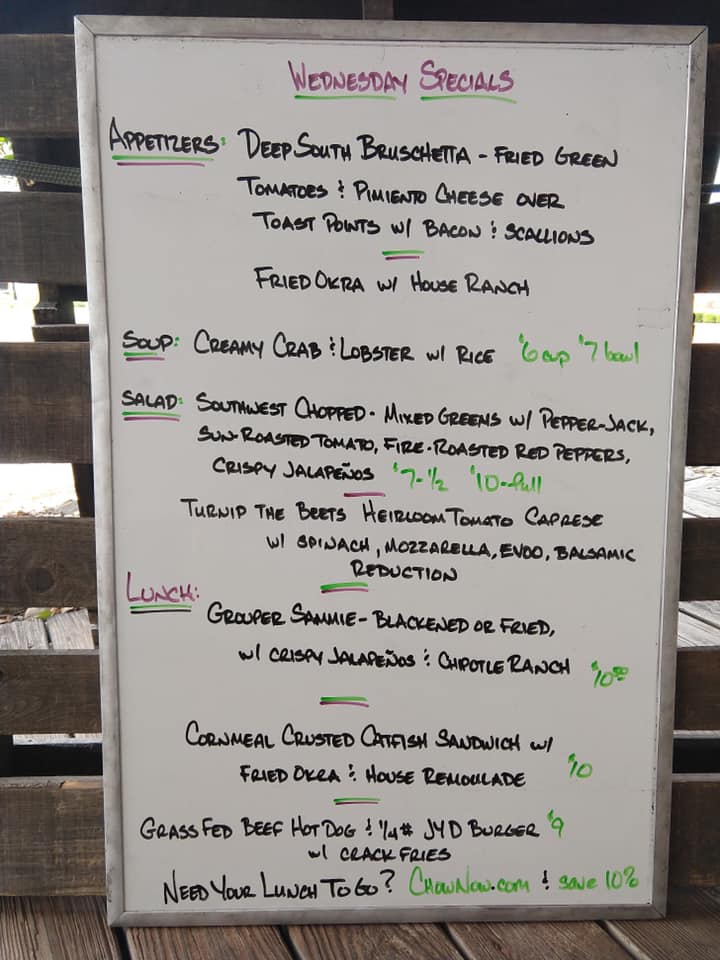 WEDNESDAY SPECIALS
APPETIZERS: DEEP SOUTH BRUSCHETTA - FRIED GREEN
TOMATOES & PIMIENTO CHEESE OVER
TOAST POINTS W/ BACON & SCALLIONS
FRIED OKRA W/ HOUSE RANCH
SOUP: CREAMY CRAB & LOBSTER W/ RICE $6 cup $7 bowl
SALAD: SOUTHWEST CHOPPED - MIXED GREENS W/ PEPPER-JACK,
SUN-ROASTED TOMATO, FIRE-ROASTED RED PEPPERS,
CRISPY JALAPEÑOS $7-1/2 $10-full
TURNIP THE BEETS HEIRLOOM TOMATO CAPRESE
W/ SPINACH, MOZZARELLA, EVOO, BALSAMIC
REDUCTION
LUNCH:
GROUPER SAMMIE - BLACKENED OR FRIED,
W/ CRISPY JALAPEÑOS & CHIPOTLE RANCH $10.00
CORNMEAL CRUSTED CATFISH SANDWICH W/
FRIED OKRA & HOUSE REMOULADE $10
GRASS FED BEEF HOT DOG & 1/4# JYD BURGER $9
W/ CRACK FRIES
NEED YOUR LUNCH TO GO? CHOWNOW.com & save 10%